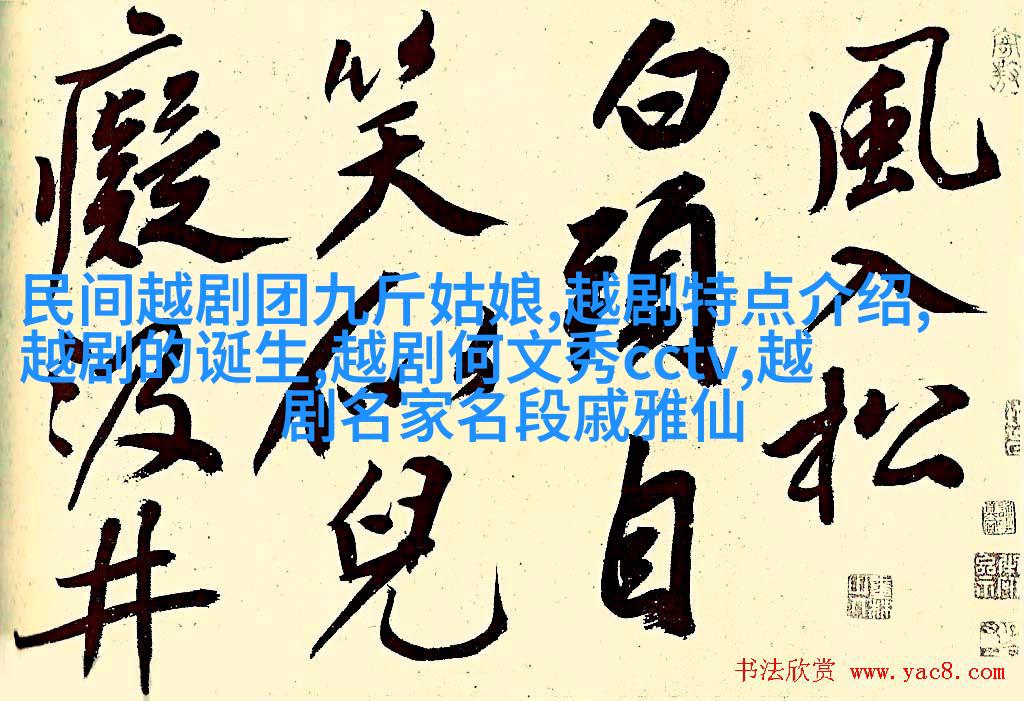 風入松
白頭自
笑似兒
癡汲井
民间越剧团九斤姑娘,越剧特点介绍,
越剧的诞生,越剧何文秀cctv,越
剧名家名段戚雅仙
书法欣赏 www.yac8.com